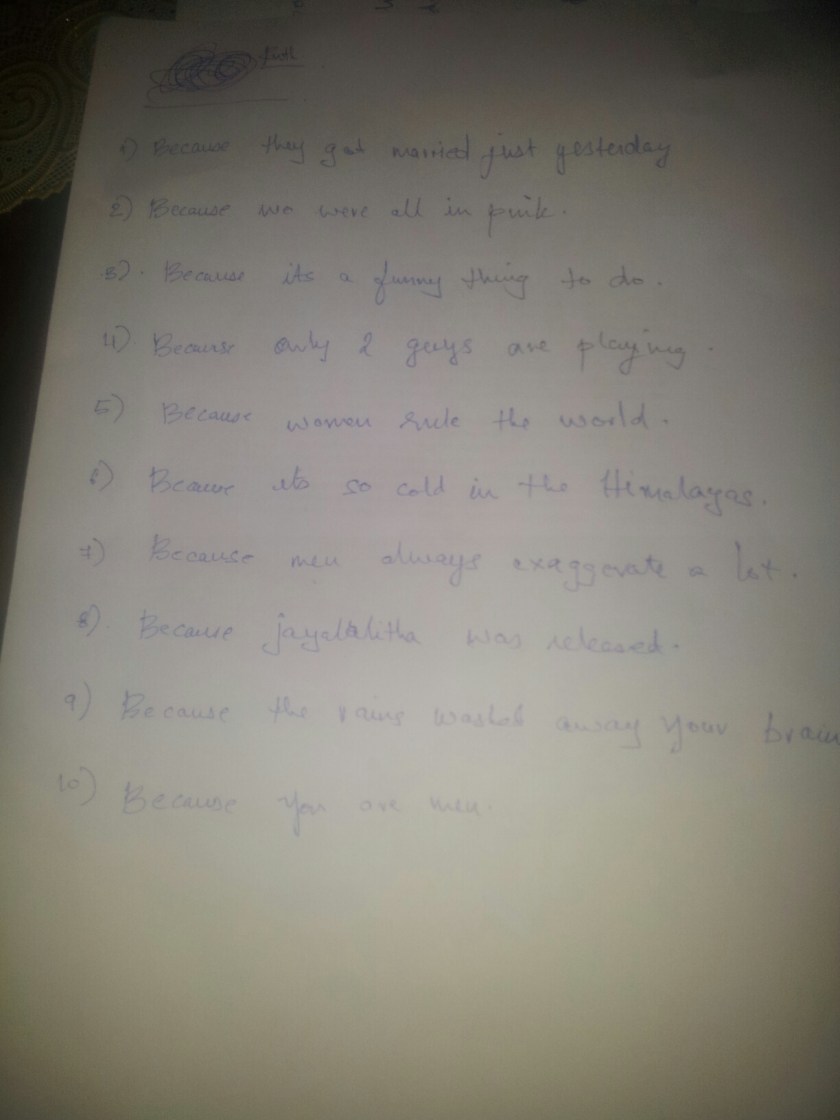 1) Because they got married just yesterday
2) Because we were all in pink.
3). Because its a funny thing to do.
4) Because only 2 guys are playing.
5) Because women rule the world.
6) Because its so cold in the Himalayas.
7) Because men always exaggerate a lot.
8). Because jayallalitha was released.
9) Because the rains washed away your brain
10) Because you are men.